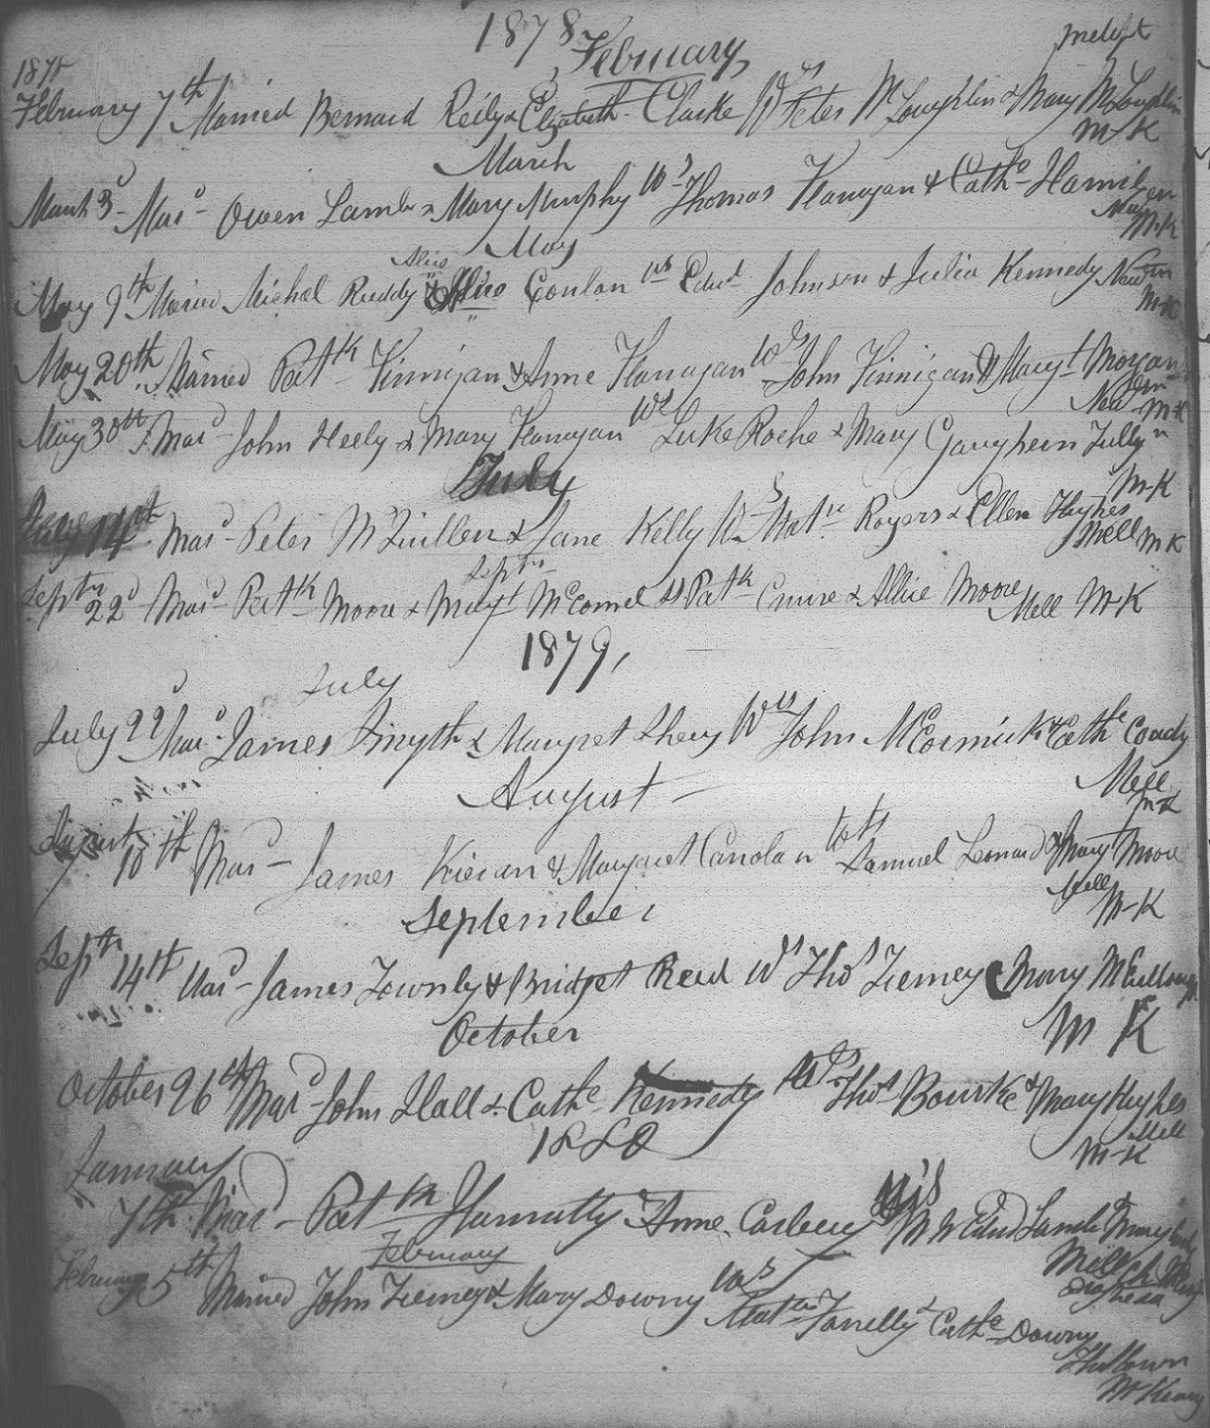 1878
February
1878
February 7th Married Bernard Reily & Elizabeth Clarke Ws Peter McLoughlin & Mary McLoughlin
M K
March
March 3d Mard Owen Lamb & Mary Murphy Ws Thomas Flanagan & Cathe Hamilton
M.K
May
Alice
May 9th Married Michal Ruddy & Alice Conlon Ws Edwd Johnson & Julia Kennedy Newtn
M-K
May 20th Married Patk Finnigan & Anne Flanagan Ws John Finnigan & Maryt Morgan
Newtn M-K
May 30th Mard John Heely & Mary Flanagan Ws Luke Roche & Mary Gaughern Tully
M-K
July
July 14th Mard Peter McQuillen & Jane Kelly Ws Matw Rogers & Ellen Hughes
Mell M K
Septr
Septr 22d Mard Patk Moore & Margt McConnel Ws Patk & Allice Moore
Mell M-K
1879,
July
July 22d Mard James Smyth & Margret Ws John McCormick & Cathe Coady
Mell
M-K
August
August 10th Mard James Kieran & Margaret Carolan Wss Samuel Leonard & Margt Moore
Mell
M-K
September
Sept 14th Mard James Townly & Bridget Reid Ws Thos Tierney & Mary McCullough
M K
October
October 26th Mard John Hall & Cathe Kennedy Ws Thos Bourke & Mary Hughes
Mell
M-K
1880
January
7th Mard Patk Hanratty Anne Carbery Ws Edwd Lamb Mary
Mell
Drogheda
February
February 5th Married John Tierney & Mary Downy Ws Matw Farrelly & Cathe Downy
M Keary